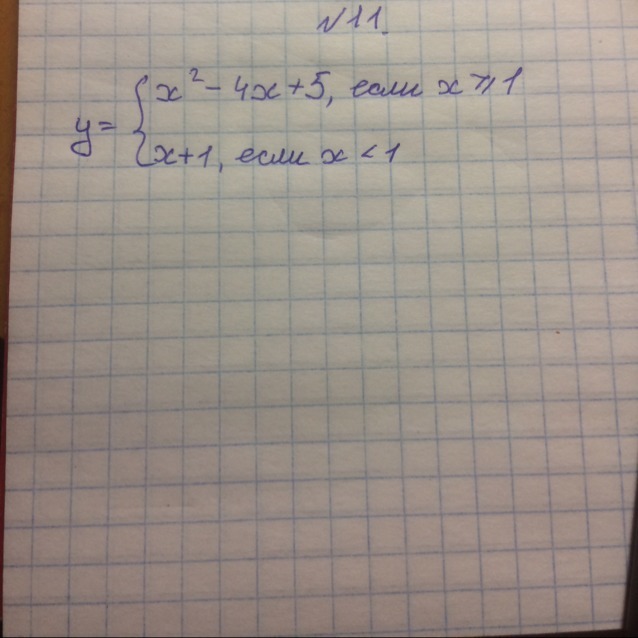 №11.
y = { x² - 4x + 5, если x ⩾ 1
x + 1, если x < 1